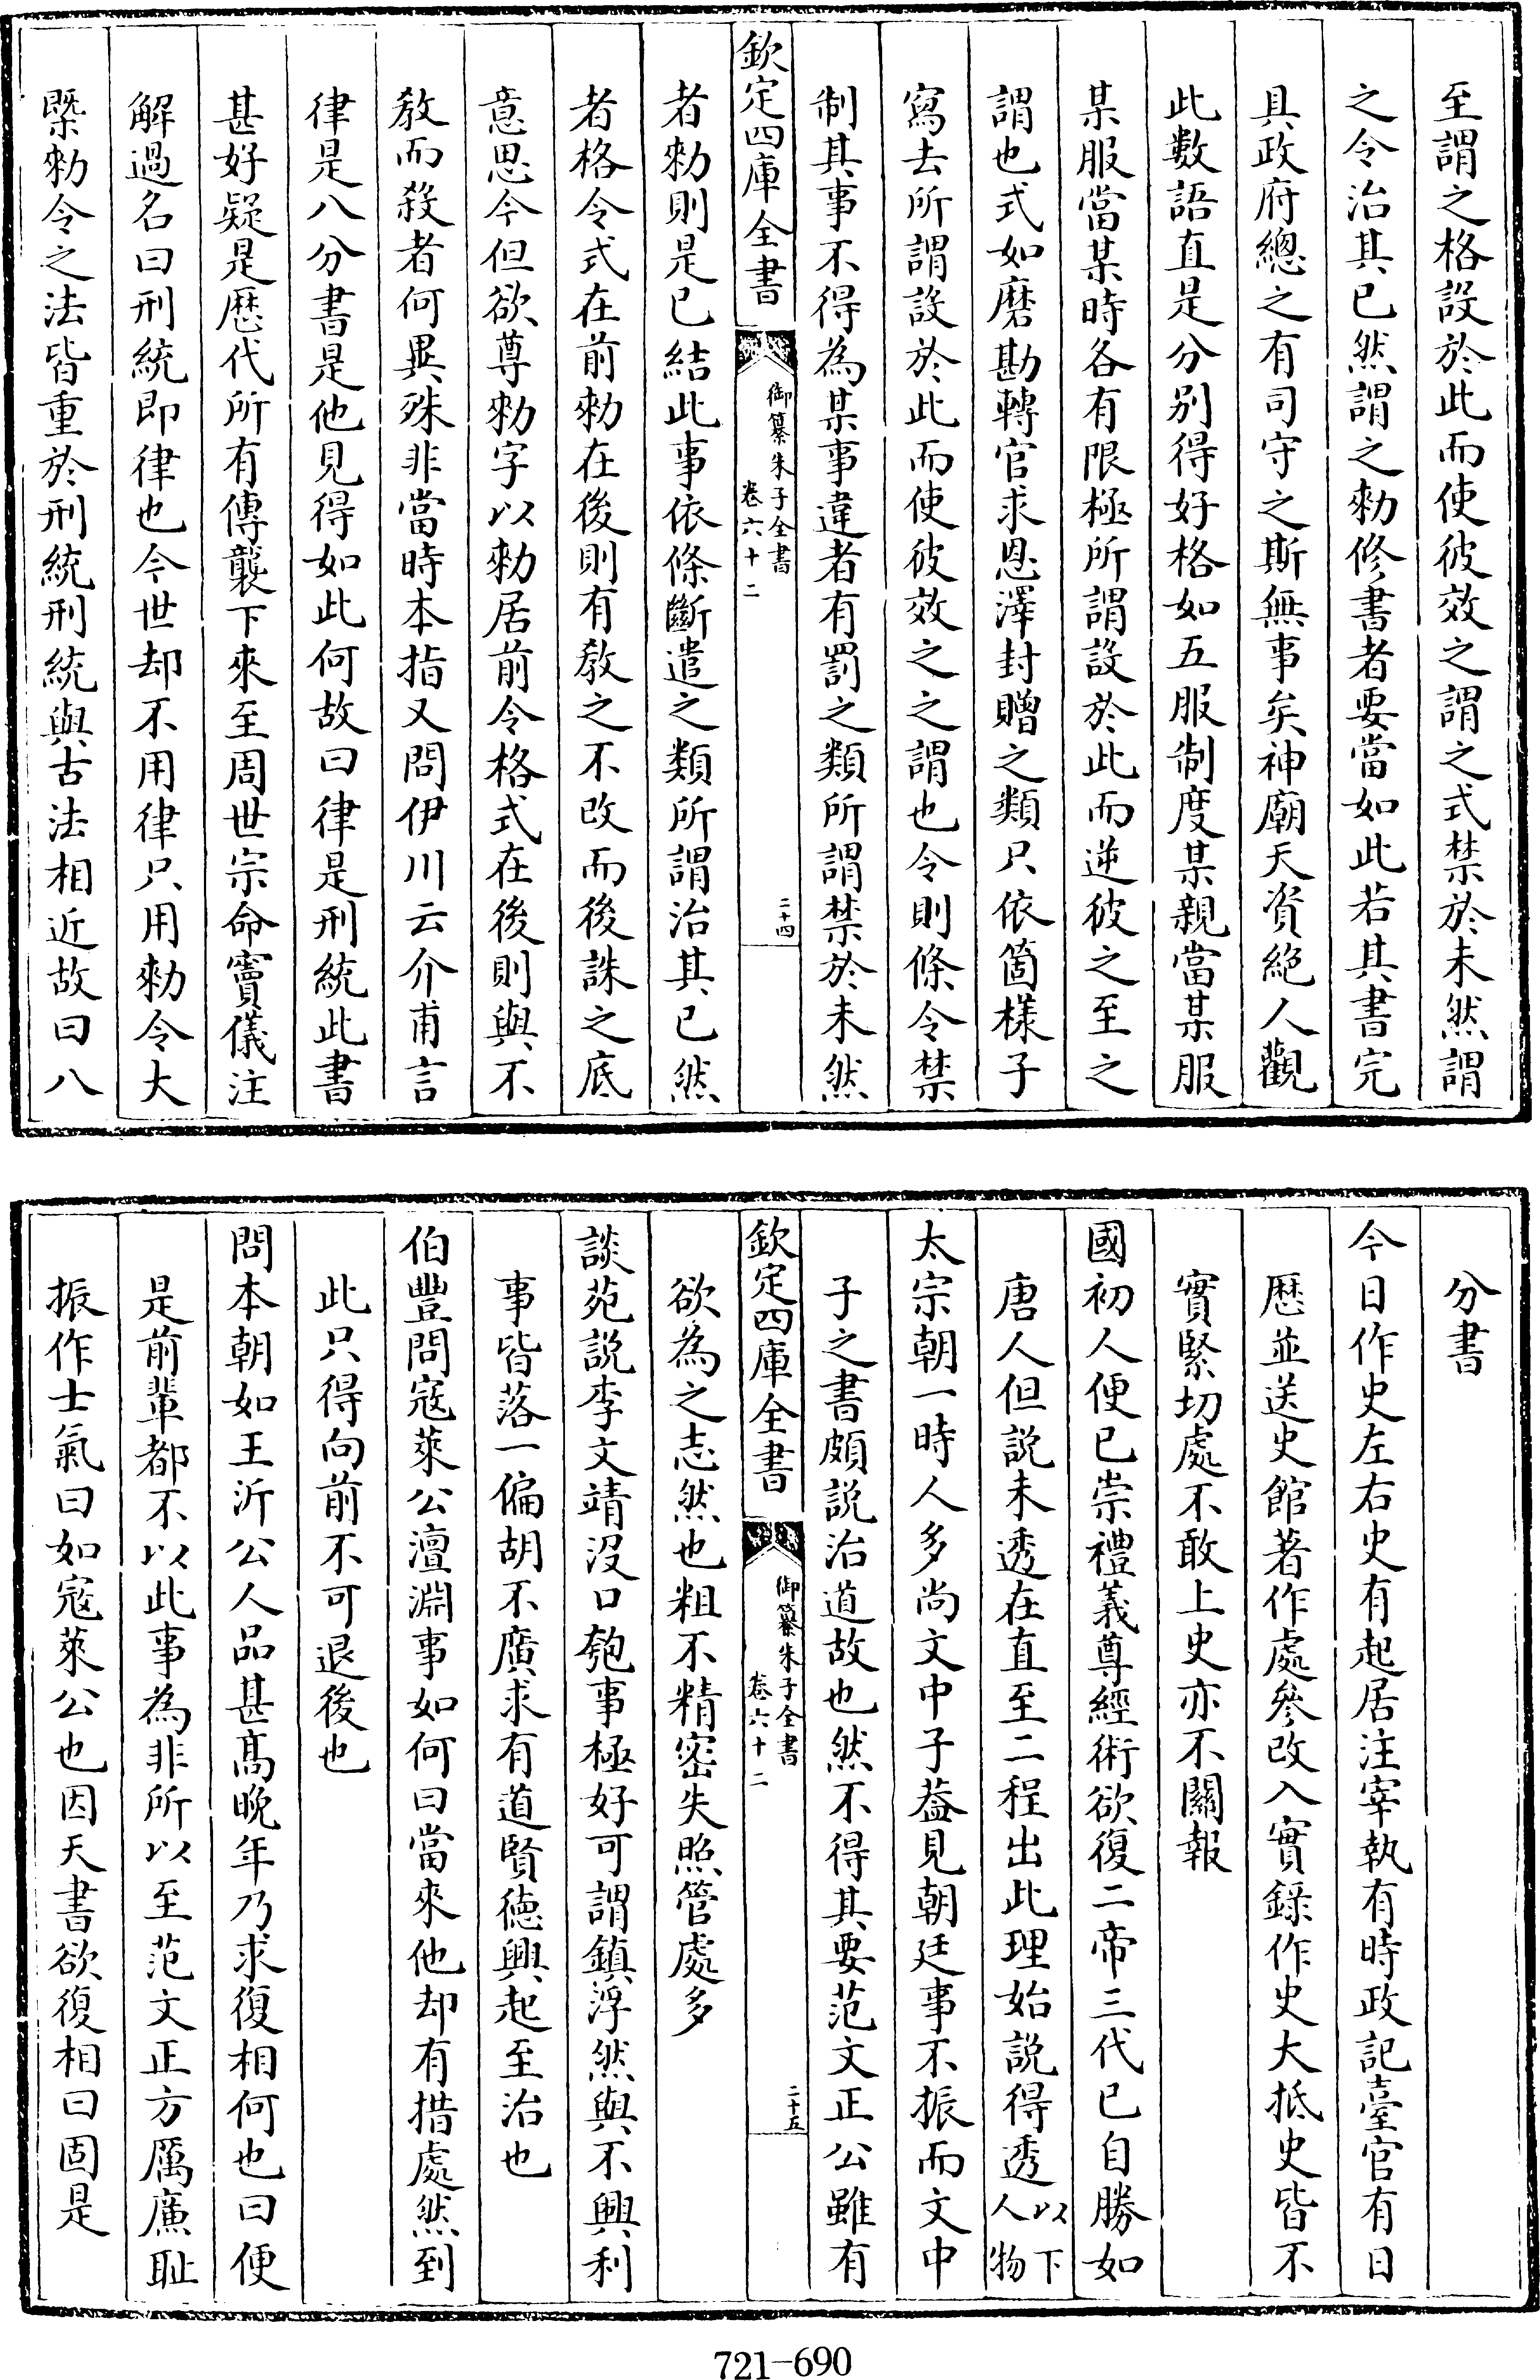 至謂之格設於此而使彼效之謂之式禁於未然謂
之令治其已然謂之勑修書者要當如此若其書完
具政府總之有司守之斯無事矣神廟天資絶人觀
此數語直是分别得好格如五服制度某親當某服
某服當某時各有限極所謂設於此而逆彼之至之
謂也式如磨勘轉官求恩澤封贈之類只依箇様子
寫去所謂設於此而使彼效之之謂也令則條令禁
制其事不得為某事違者有罰之類所謂禁於未然
欽定四庫全書
御纂朱子全書
卷六十二
二十四
者勑則是已結此事依條斷遣之類所謂治其已然
者格令式在前勑在後則有教之不改而後誅之底
意思今但欲尊勑字以勑居前令格式在後則與不
教而殺者何異殊非當時本指又問伊川云介甫言
律是八分書是他見得如此何故曰律是刑統此書
甚好疑是歴代所有傳襲下來至周世宗命竇儀注
解過名曰刑統即律也今世却不用律只用勑令大
槩勑令之法皆重於刑統刑統與古法相近故曰八
分書
今日作史左右史有起居注宰執有時政記臺官有日
歴並送史館著作處參改入實錄作史大抵史皆不
實緊切處不敢上史亦不關報
國初人便已崇禮義尊經術欲復二帝三代已自勝如
唐人但説未透在直至二程出此理始説得透以下人物
太宗朝一時人多尚文中子葢見朝廷事不振而文中
子之書頗説治道故也然不得其要范文正公雖有
欽定四庫全書
御纂朱子全書
卷六十二
二十五
欲為之志然也粗不精密失照管處多
談苑説李文靖沒口匏事極好可謂鎮浮然與不興利
事皆落一偏胡不廣求有道賢徳興起至治也
伯豐問寇萊公澶淵事如何曰當來他却有措處然到
此只得向前不可退後也
問本朝如王沂公人品甚髙晚年乃求復相何也曰便
是前輩都不以此事為非所以至范文正方厲亷恥
振作士氣曰如寇萊公也因天書欲復相曰固是
721-690